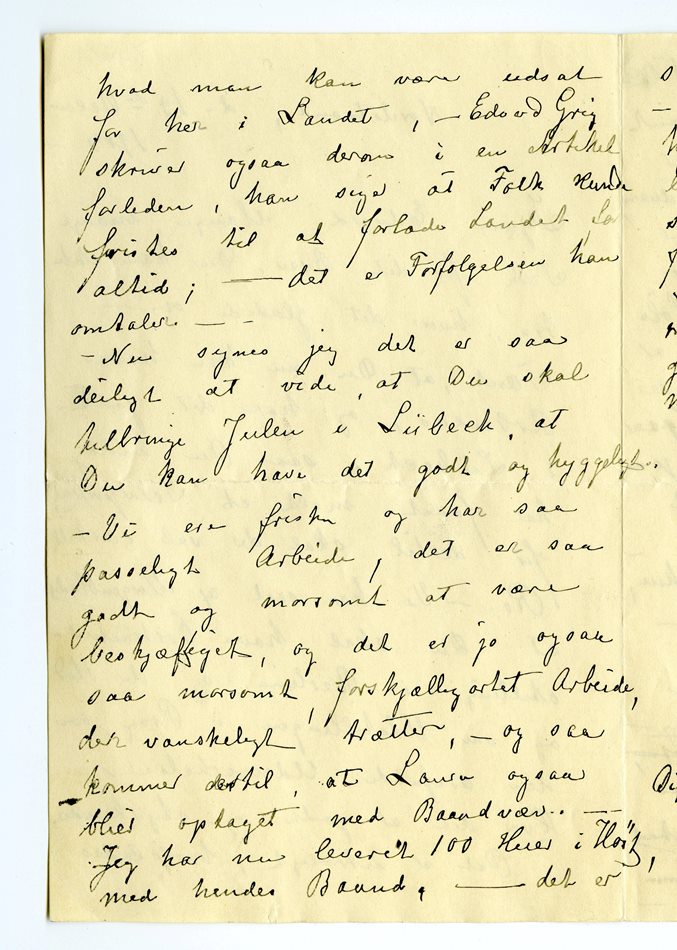 hvad man kan være udsat
for her i Landet, – Edvard Grig
skriver ogsaa derom i en Artikel
forleden, han siger at Folk kunde
fristes til at forlade Landet for
altid; — det er Forfølgelsen han
omtaler. – –
– Nu synes jeg det er saa
deiligt at vide, at Du skal
tilbringe Julen i Lübeck, at
Du kan have det godt og hyggeligt.
– Vi ere friske og har saa
passeligt Arbeide, det er saa
godt og morsomt at være
beskjæftiget, og det er jo ogsaa
saa morsomt, forskjelligartet Arbeide,
der vanskeligt trætter, – og saa
kommer dertil, at Laura ogsaa
blier optaget med Baandvæv. —
Jeg har nu leveret 100 Huer i Høst,
med hendes Baand, — det er